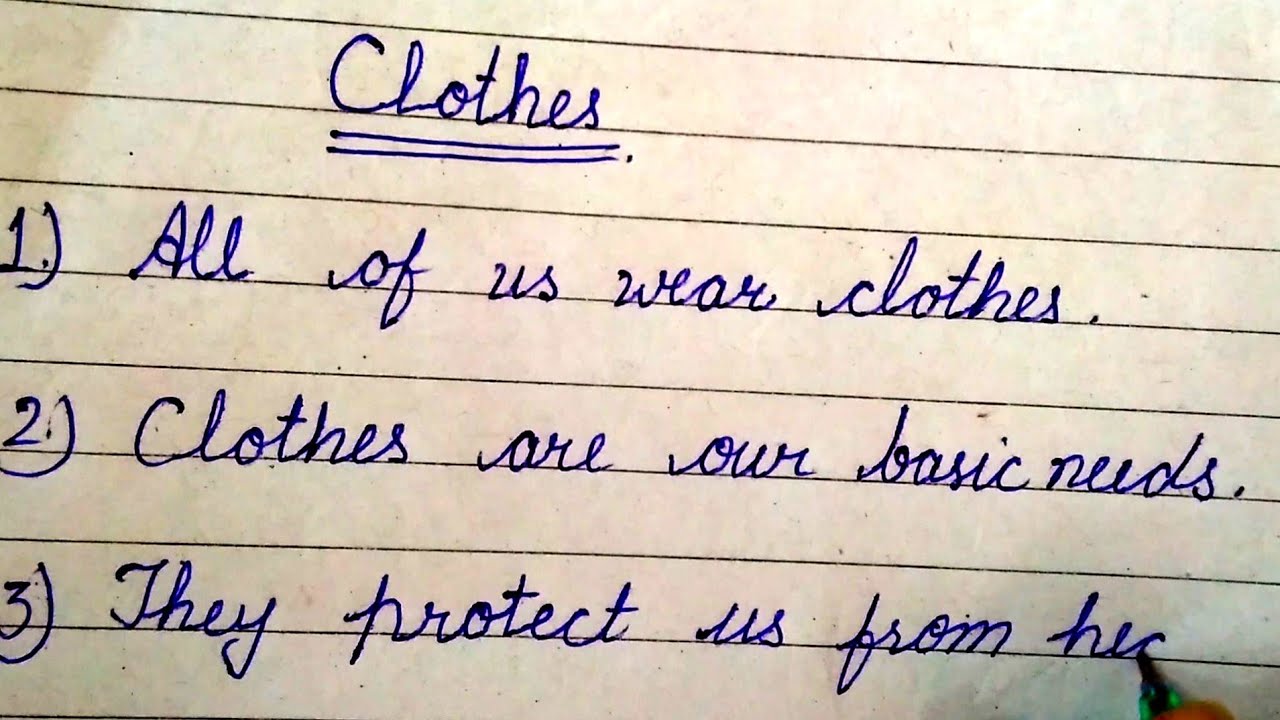 Clothes.
1.) All of us wear clothes.
2.) Clothes are our basic needs.
3) They protect us from